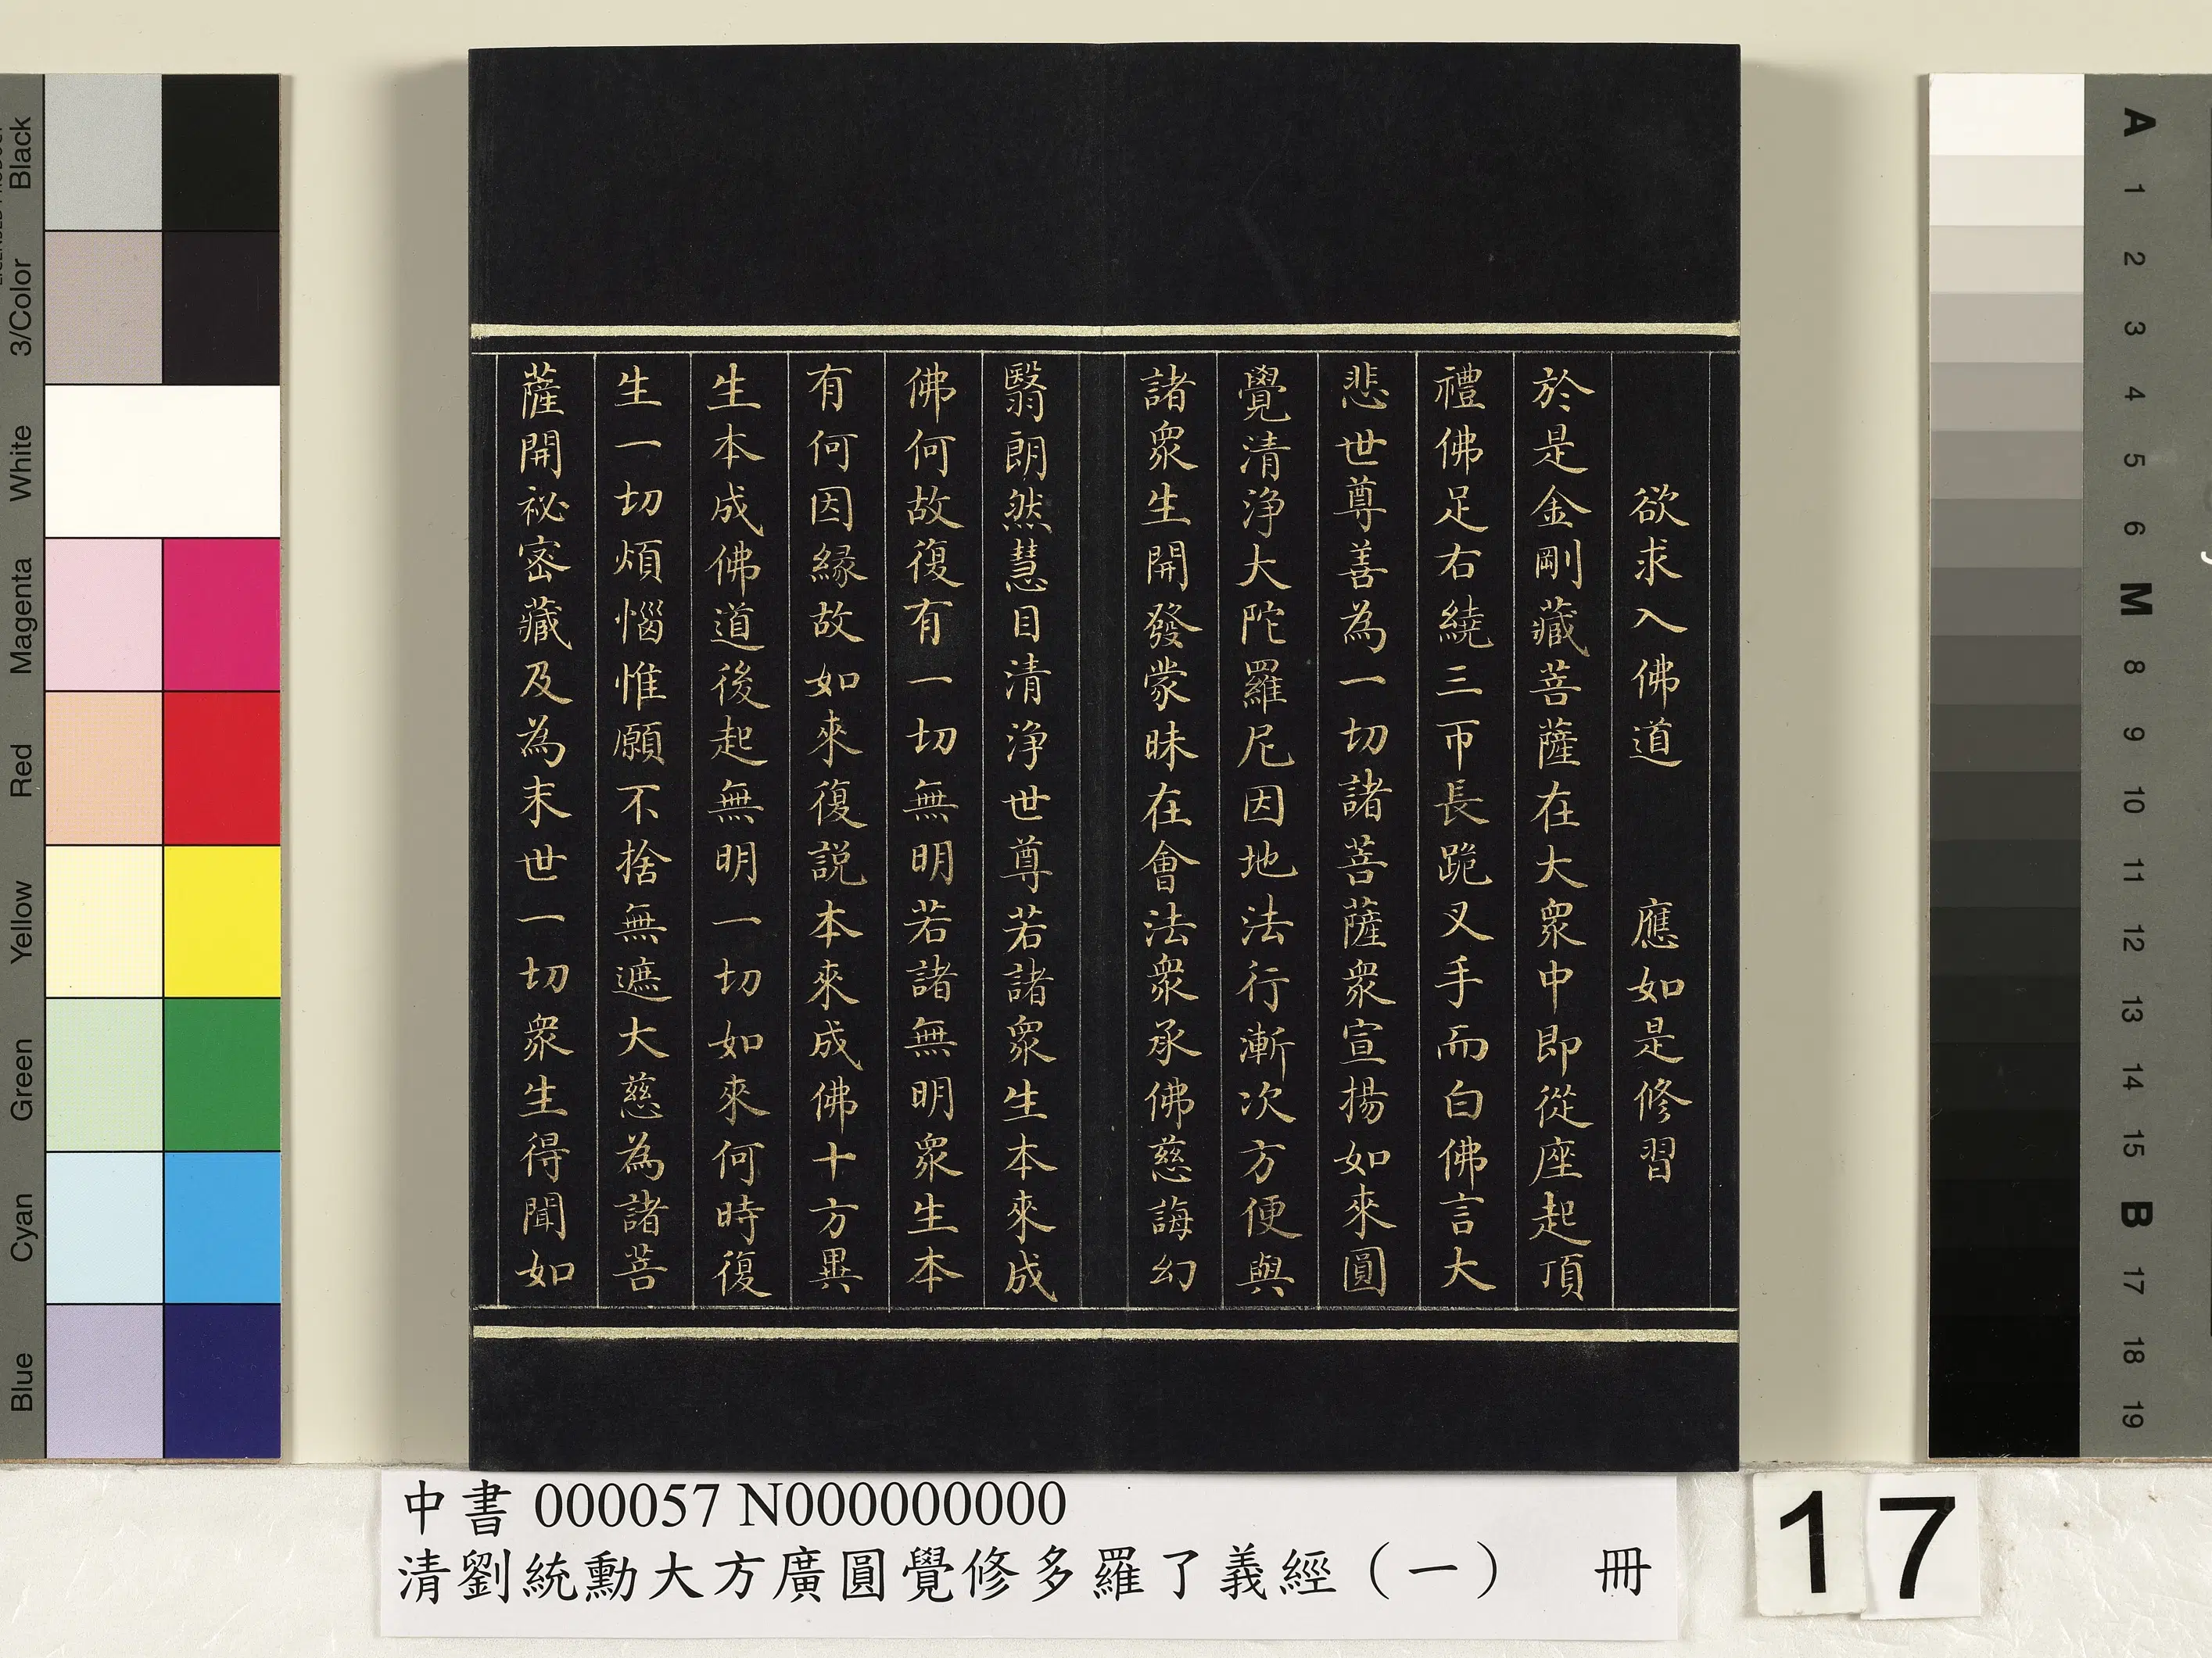 欲求入佛道　應如是修習
於是金剛藏菩薩在大衆中即從座起頂
禮佛足右繞三帀長跪叉手而白佛言大
悲世尊善為一切諸菩薩衆宣揚如來圓
覺清淨大陀羅尼因地法行漸次方便與
諸衆生開發蒙昧在會法衆承佛慈誨幻
翳朗然慧目清淨世尊若諸衆生本來成
佛何故復有一切無明若諸無明衆生本
有何因緣故如來復説本來成佛十方異
生本成佛道後起無明一切如來何時復
生一切煩惱惟願不捨無遮大慈為諸菩
薩開祕密藏及為末世一切衆生得聞如
中書 000057 N000000000
清劉統勳大方廣圓覺修多羅了義經（一）　冊
17
Black
3/Color
White
Magenta
Red
Yellow
Green
Cyan
Blue
A
1
2
3
4
5
6
M
8
9
10
11
12
13
14
15
B
17
18
19